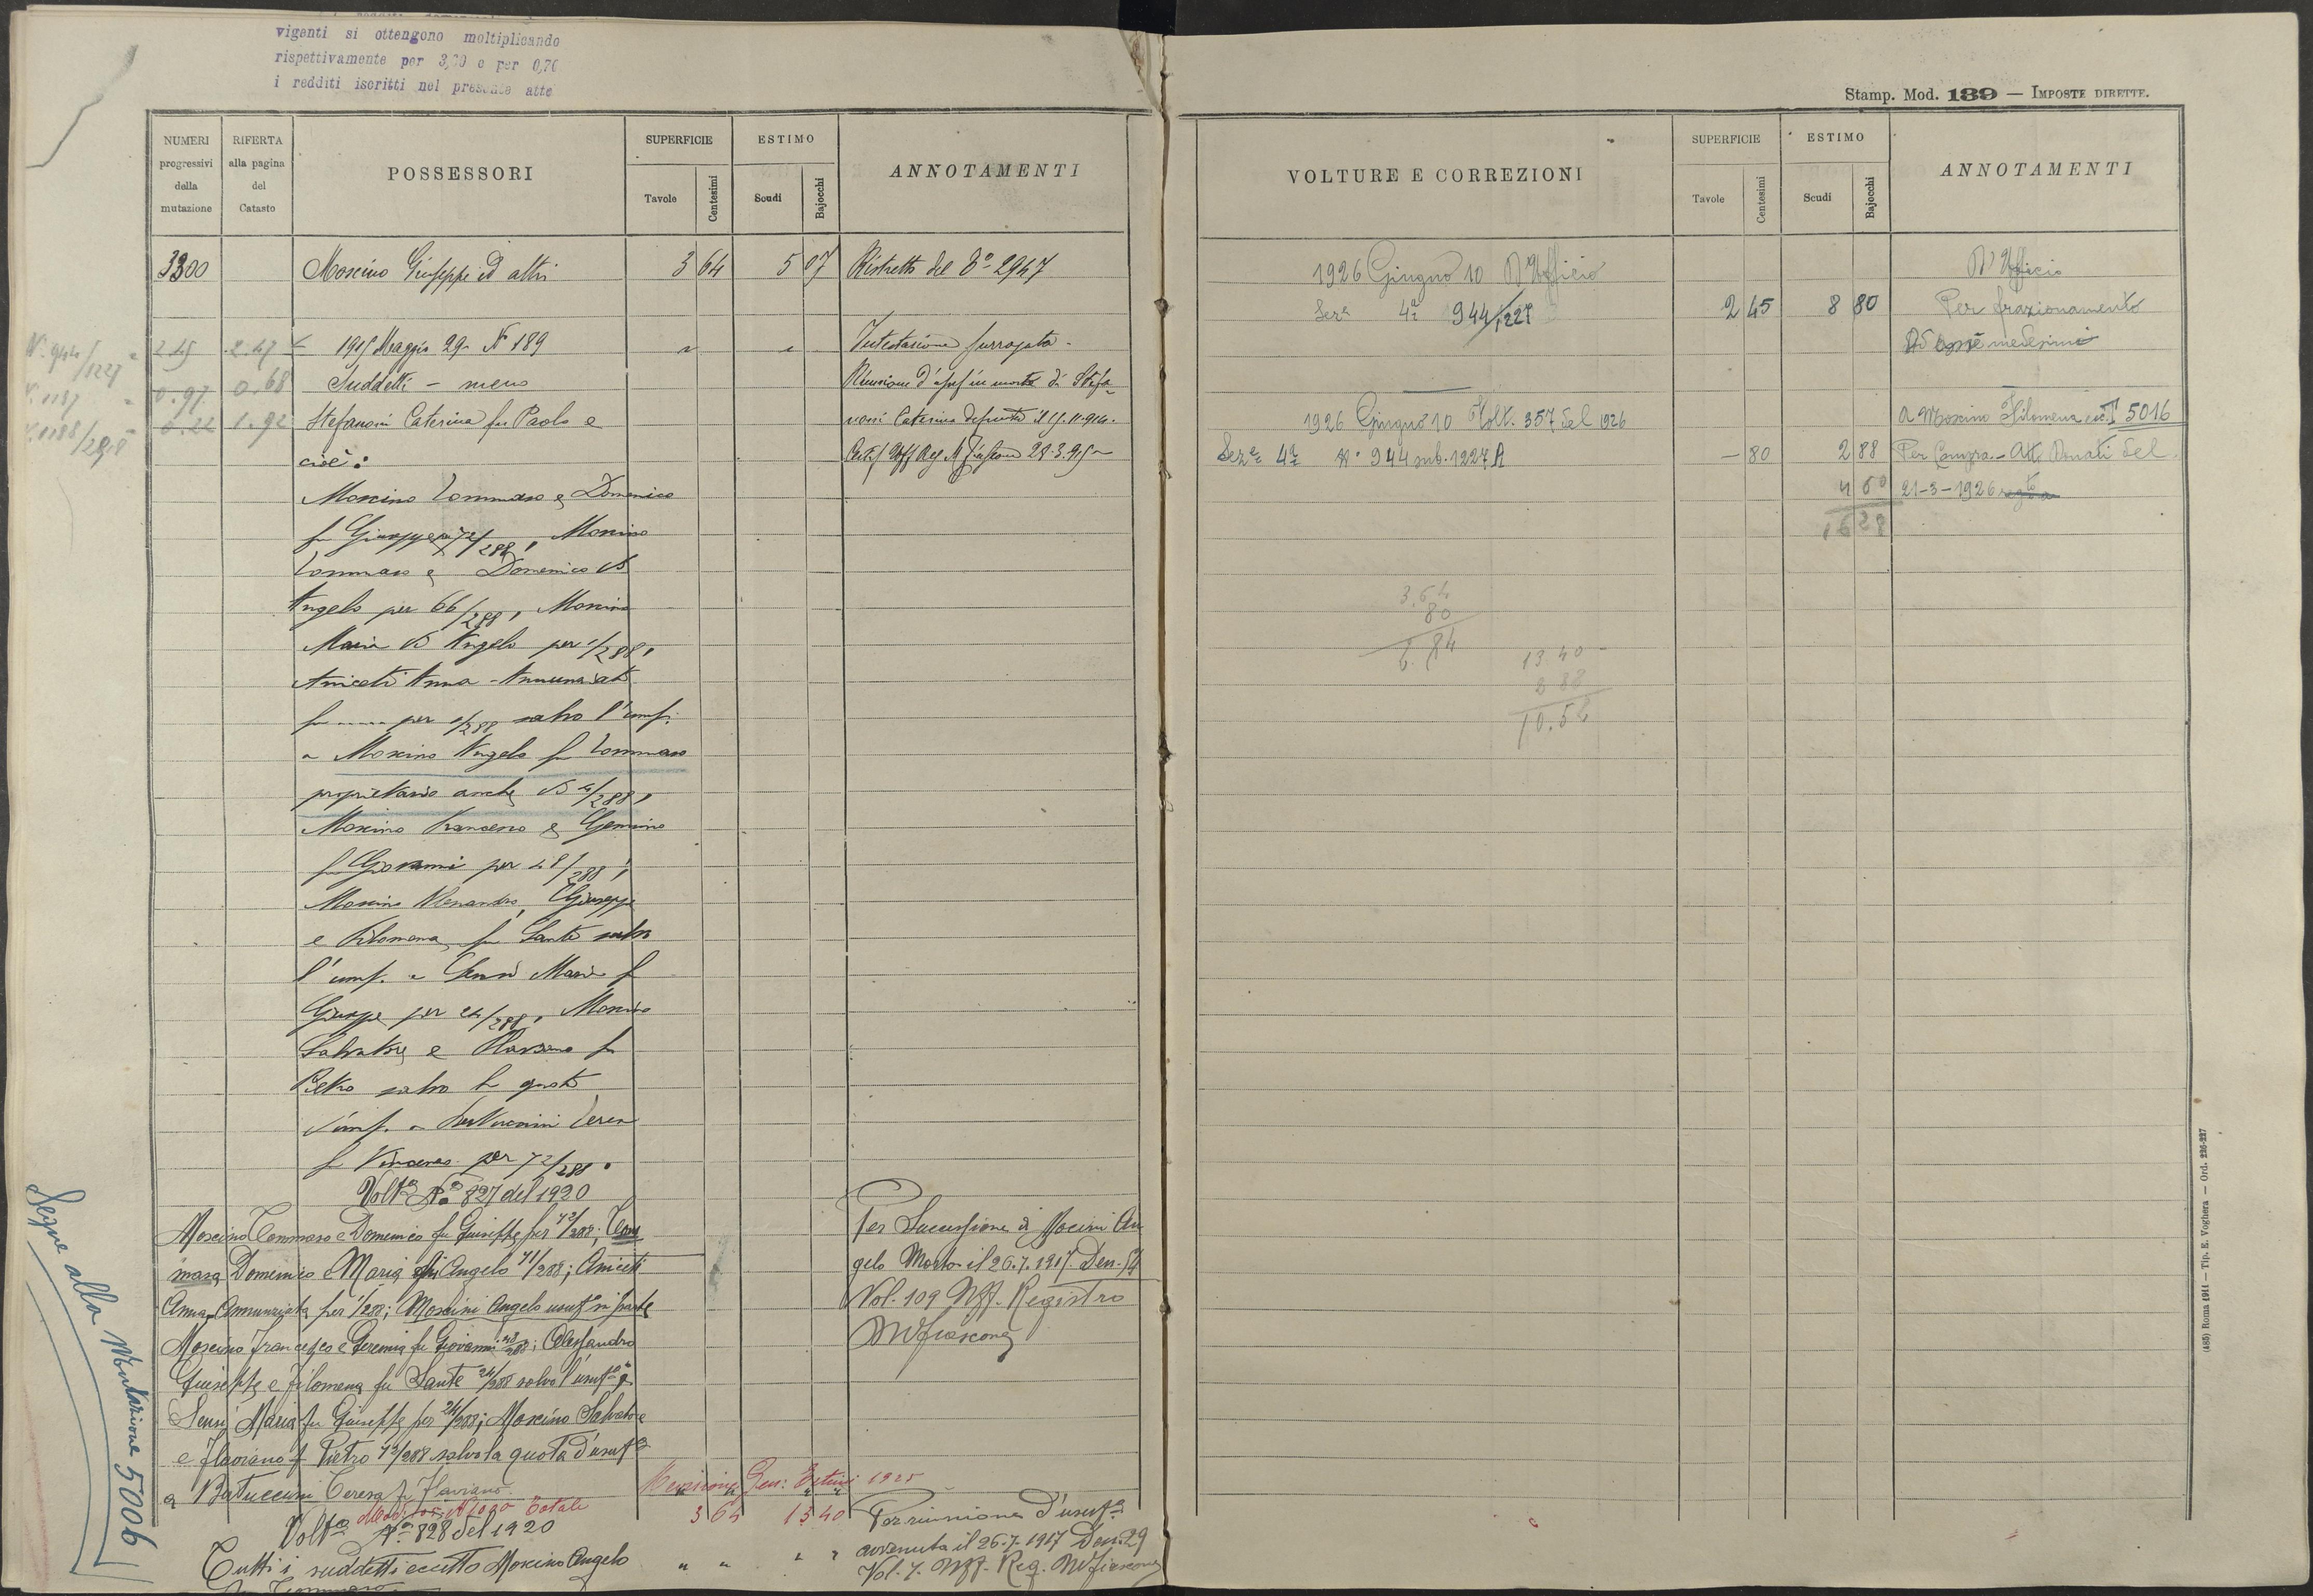 viganti si ottengono moltiplicando
rispettivamente per 3,00 e per 0,70
i redditi iscritti nel presente atto
NUMERI progressivi della mutazione
RIFERTA alla pagina del Catasto
POSSESSORI
SUPERFICIE
Tavole
Centesimi
ESTIMO
Scudi
Bajocchi
ANNOTAMENTI
3300 Moscino Giuseppe ed altri 3 64 5 07 Ristretto del 2947
N. 944/1227 2.45 2.47 1915 Maggio 29 N 189 Intestazione surrogata
N. 1187 0.97 0.68 Suddetti - meno Riunione d'usuf in morte di Stefa-
N. 1188 0.22 1.92 Stefanoni Caterina fu Paolo e noni Caterina
cioè:
Moscino Tommaso e Domenico
fu Giuseppe 72/288, Moscino
Tommaso e Domenico di
Angelo per 66/288, Moscino
Maria di Angelo per 1/288,
Aniceti Anna Annunziata
fu ...... per 1/288 salvo l'usuf.
a Moscino Angelo fu Tommaso
proprietario anche di 4/288,
Moscino Francesco e Gemino
fu Giovanni per 48/288,
Moscino Alessandro, Giuseppe
e Filomena fu Sante salvo
l'usuf. a Sensi Maria fu
Giuseppe per 24/288, Moscino
Salvatore e Flaviano fu
Pietro salvo la quota
d'usuf. a Teresa
fu Vincenzo per 72/288.
Volt.a N.o 827 del 1920
Moscino Tommaso e Domenico fu Giuseppe per 72/288; Tom Per Successione di Mocini An
maso Domenico e Maria di Angelo 71/288; Aniceti gelo Morto il 26.7.1917. Den. 54
Anna Annunziata per 1/288; Moscini Angelo usuf.o in parte Vol. 109 Uff. Registro
Moscino Francesco e Geremia fu Giovanni 48/288; Alessandro Mfiascone
Giuseppe e Filomena fu Sante 24/288 salvo l'usuf.o a
Sensi Maria fu Giuseppe per 24/288; Moscino Salvatore
e Flaviano f Pietro 72/288 salvo la quota d'usuf.o
a Bertuccini Teresa fu Flaviano
Revisione Gen: Estimi 1925
Totale 3 64 13 40
Volt.a N.o 828 del 1920 Per riunione d'usuf.o
Tutti i suddetti eccetto Moscino Angelo " " " " avvenuta il 26.7.1917 Den. 29
fu Tommaso. Vol. 7. Uff. Reg. Mfiascone
Segue alla Mutazione 5006
Stamp. Mod. 139 — IMPOSTE DIRETTE.
VOLTURE E CORREZIONI
SUPERFICIE
Tavole
Centesimi
ESTIMO
Scudi
Bajocchi
ANNOTAMENTI
1926 Giugno 10 D'Ufficio D'Ufficio
Sez.e 4a 944/1227 2 45 8 80 Per frazionamento
medesimi
1926 Giugno 10 Volt. 357 del 1926 a Moscino Filomena 5016
Sez.e 4a N. 944 sub. 1227 A — 80 2 88 Per Compra - Att. Donati del
4 60 21-3-1926
16 28
3.64
80
2.84
13 40
2 88
10.52
(485) Roma 1911 — Tip. E. Voghera — Ord. 226-227